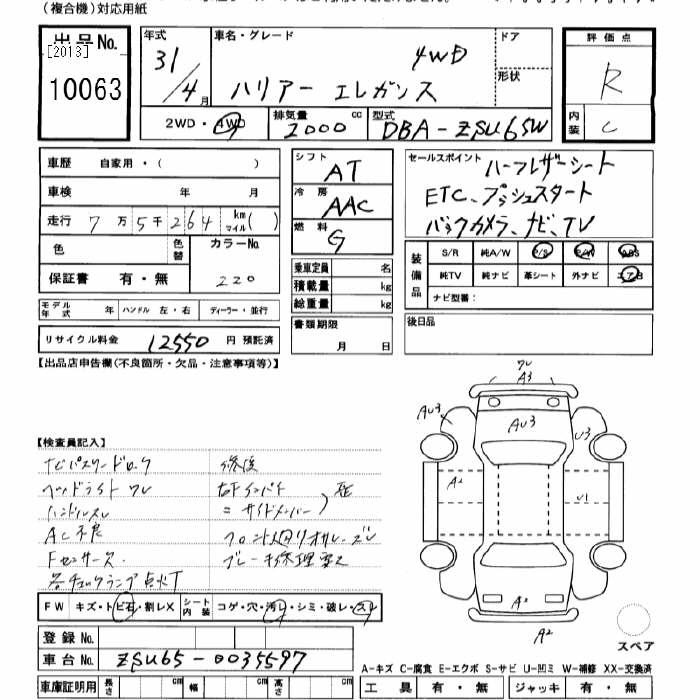 (複合機)対応用紙
出品No.
[2013]
10063
年式
31/4月
車名・グレード
4WD
ハリアー エレガンス
ドア
形状
評価点
R
内装
C
2WD・4WD
排気量
2000 cc
型式
DBA-ZSU65W
車歴 自家用・( )
車検 年 月
走行 7万5千264 km マイル( )
色 色替 カラーNo.
220
保証書 有・無
モデル年式 年 ハンドル 左・右 ディーラー・並行
リサイクル料金 12550 円 預託済
シフト
AT
冷房
AAC
燃料
G
乗車定員 名
積載量 kg
総重量 kg
書類期限
月 日
セールスポイント ハーフレザーシート
ETC、プッシュスタート
バックカメラ、ナビ、TV
装備品
S/R 純A/W P/S P/W ABS
純TV 純ナビ 革シート 外ナビ エアB
ナビ型番:
後日品
【出品店申告欄(不良箇所・欠品・注意事項等)】
【検査員記入】
ナビパスワードロック
ヘッドライトワレ
ハンドルスレ
AC不良
Fセンサーズ
各チェックランプ点灯
修復
右Fインパネ
〃 サイドメンバー
フロント廻りオサレ・ズレ
ブレーキ修理要ス
ワレ
A3
AU3
AU3
U3
A2
U1
A2
A2
スペア
FW キズ・トビ石・割レX シート内装 コゲ・穴・汚レ・シミ・破レ・スレ
登録No.
車台No. ZSU65-0035597
A-キズ C-腐食 E-エクボ S-サビ U-凹ミ W-補修 XX-交換済
車庫証明用 長さ cm 幅 cm 高さ cm
工具 有・無 ジャッキ 有・無